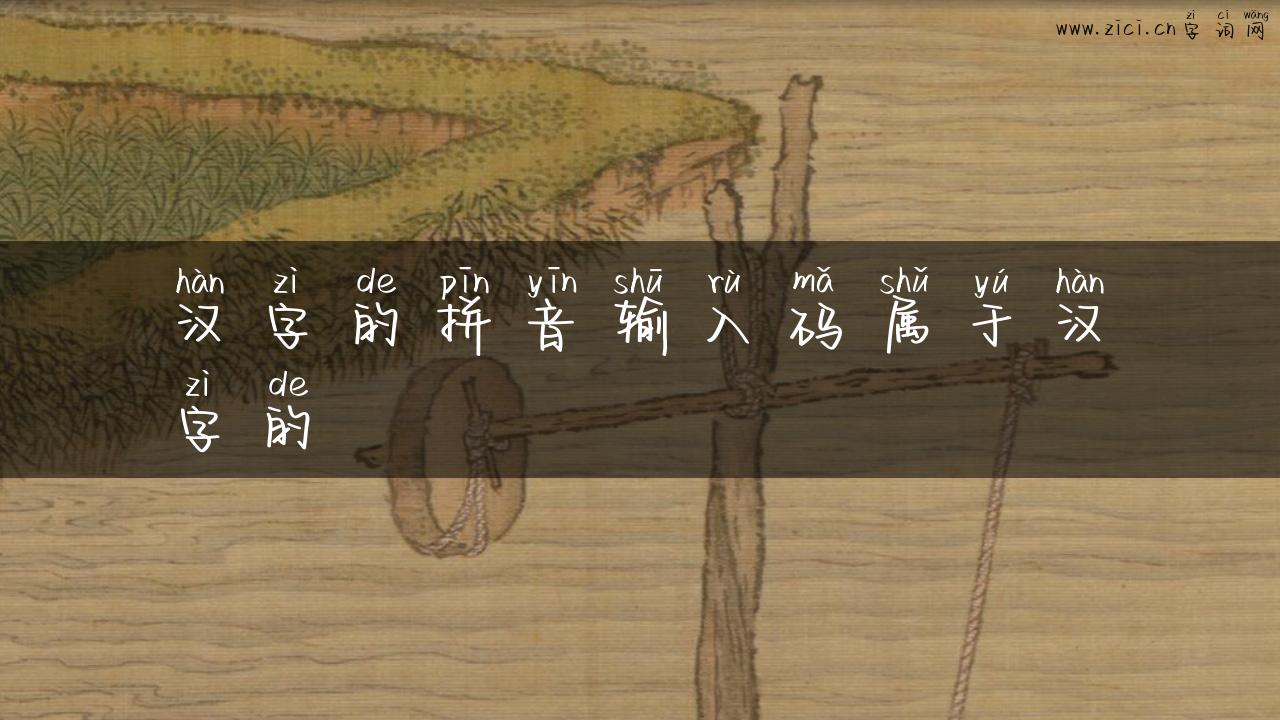 zì cí wǎng
www.zici.cn字词网
hàn zì de pīn yīn shū rù mǎ shǔ yú hàn
汉字的拼音输入码属于汉
zì de
字的